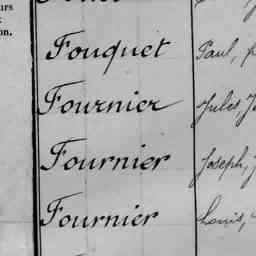 urs
on.
Fouquet Paul,
Fournier Jules, J
Fournier Joseph, J
Fournier Louis,